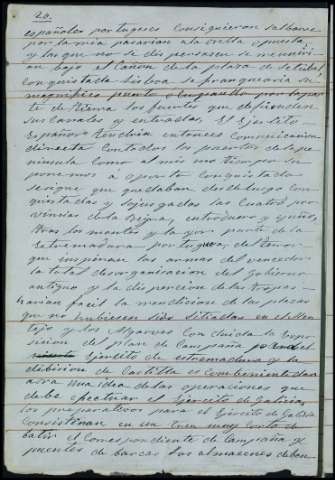 20.
españoles portugeses consiguieron salbarse
por la mia pasarian a la orilla opuesta
y las que no se dispersasen se reunirian
bajo el Cañon de la plaza de Setubal
conquistada lisboa se franquearia su
magnifico puerto a la parte
de tierra los fuertes que defienden
sus canales y entradas, El Ejercito
Español tendria entonces Comunicacion
directa Con todos los puertos de la pe
ninsula como al mismo tiempo su
ponemos a oporto conquistada
se sigue que quedaban desde luego con
quistadas y sojuzgadas las Cuatro pro
vincias de la Beyra, entreduero y miño,
tras los montes y la mayor parte de la
estremadura portuguesa, el terror
que inspiran las armas del vencedor
la total desorganisacion del Gobierno
antiguo y la dispercion de las tropas
harian facil la rendicion de las plazas
que no hubiesen sido sitiadas en el Alen
tejo y los Algarves Con cluida la espo
sicion del plan de Campaña para el
Ejercito de estremadura y la
dibision de Castilla es Combeniente dar
aora una idea de las operaciones que
debe efectuar el Ejercito de Galicia,
los preparativos para el Ejercito de Galicia
Consistirian en un tren muy Corto de
batir el Correspondiente de Campaña y
puentes de barcas los almacenes deben